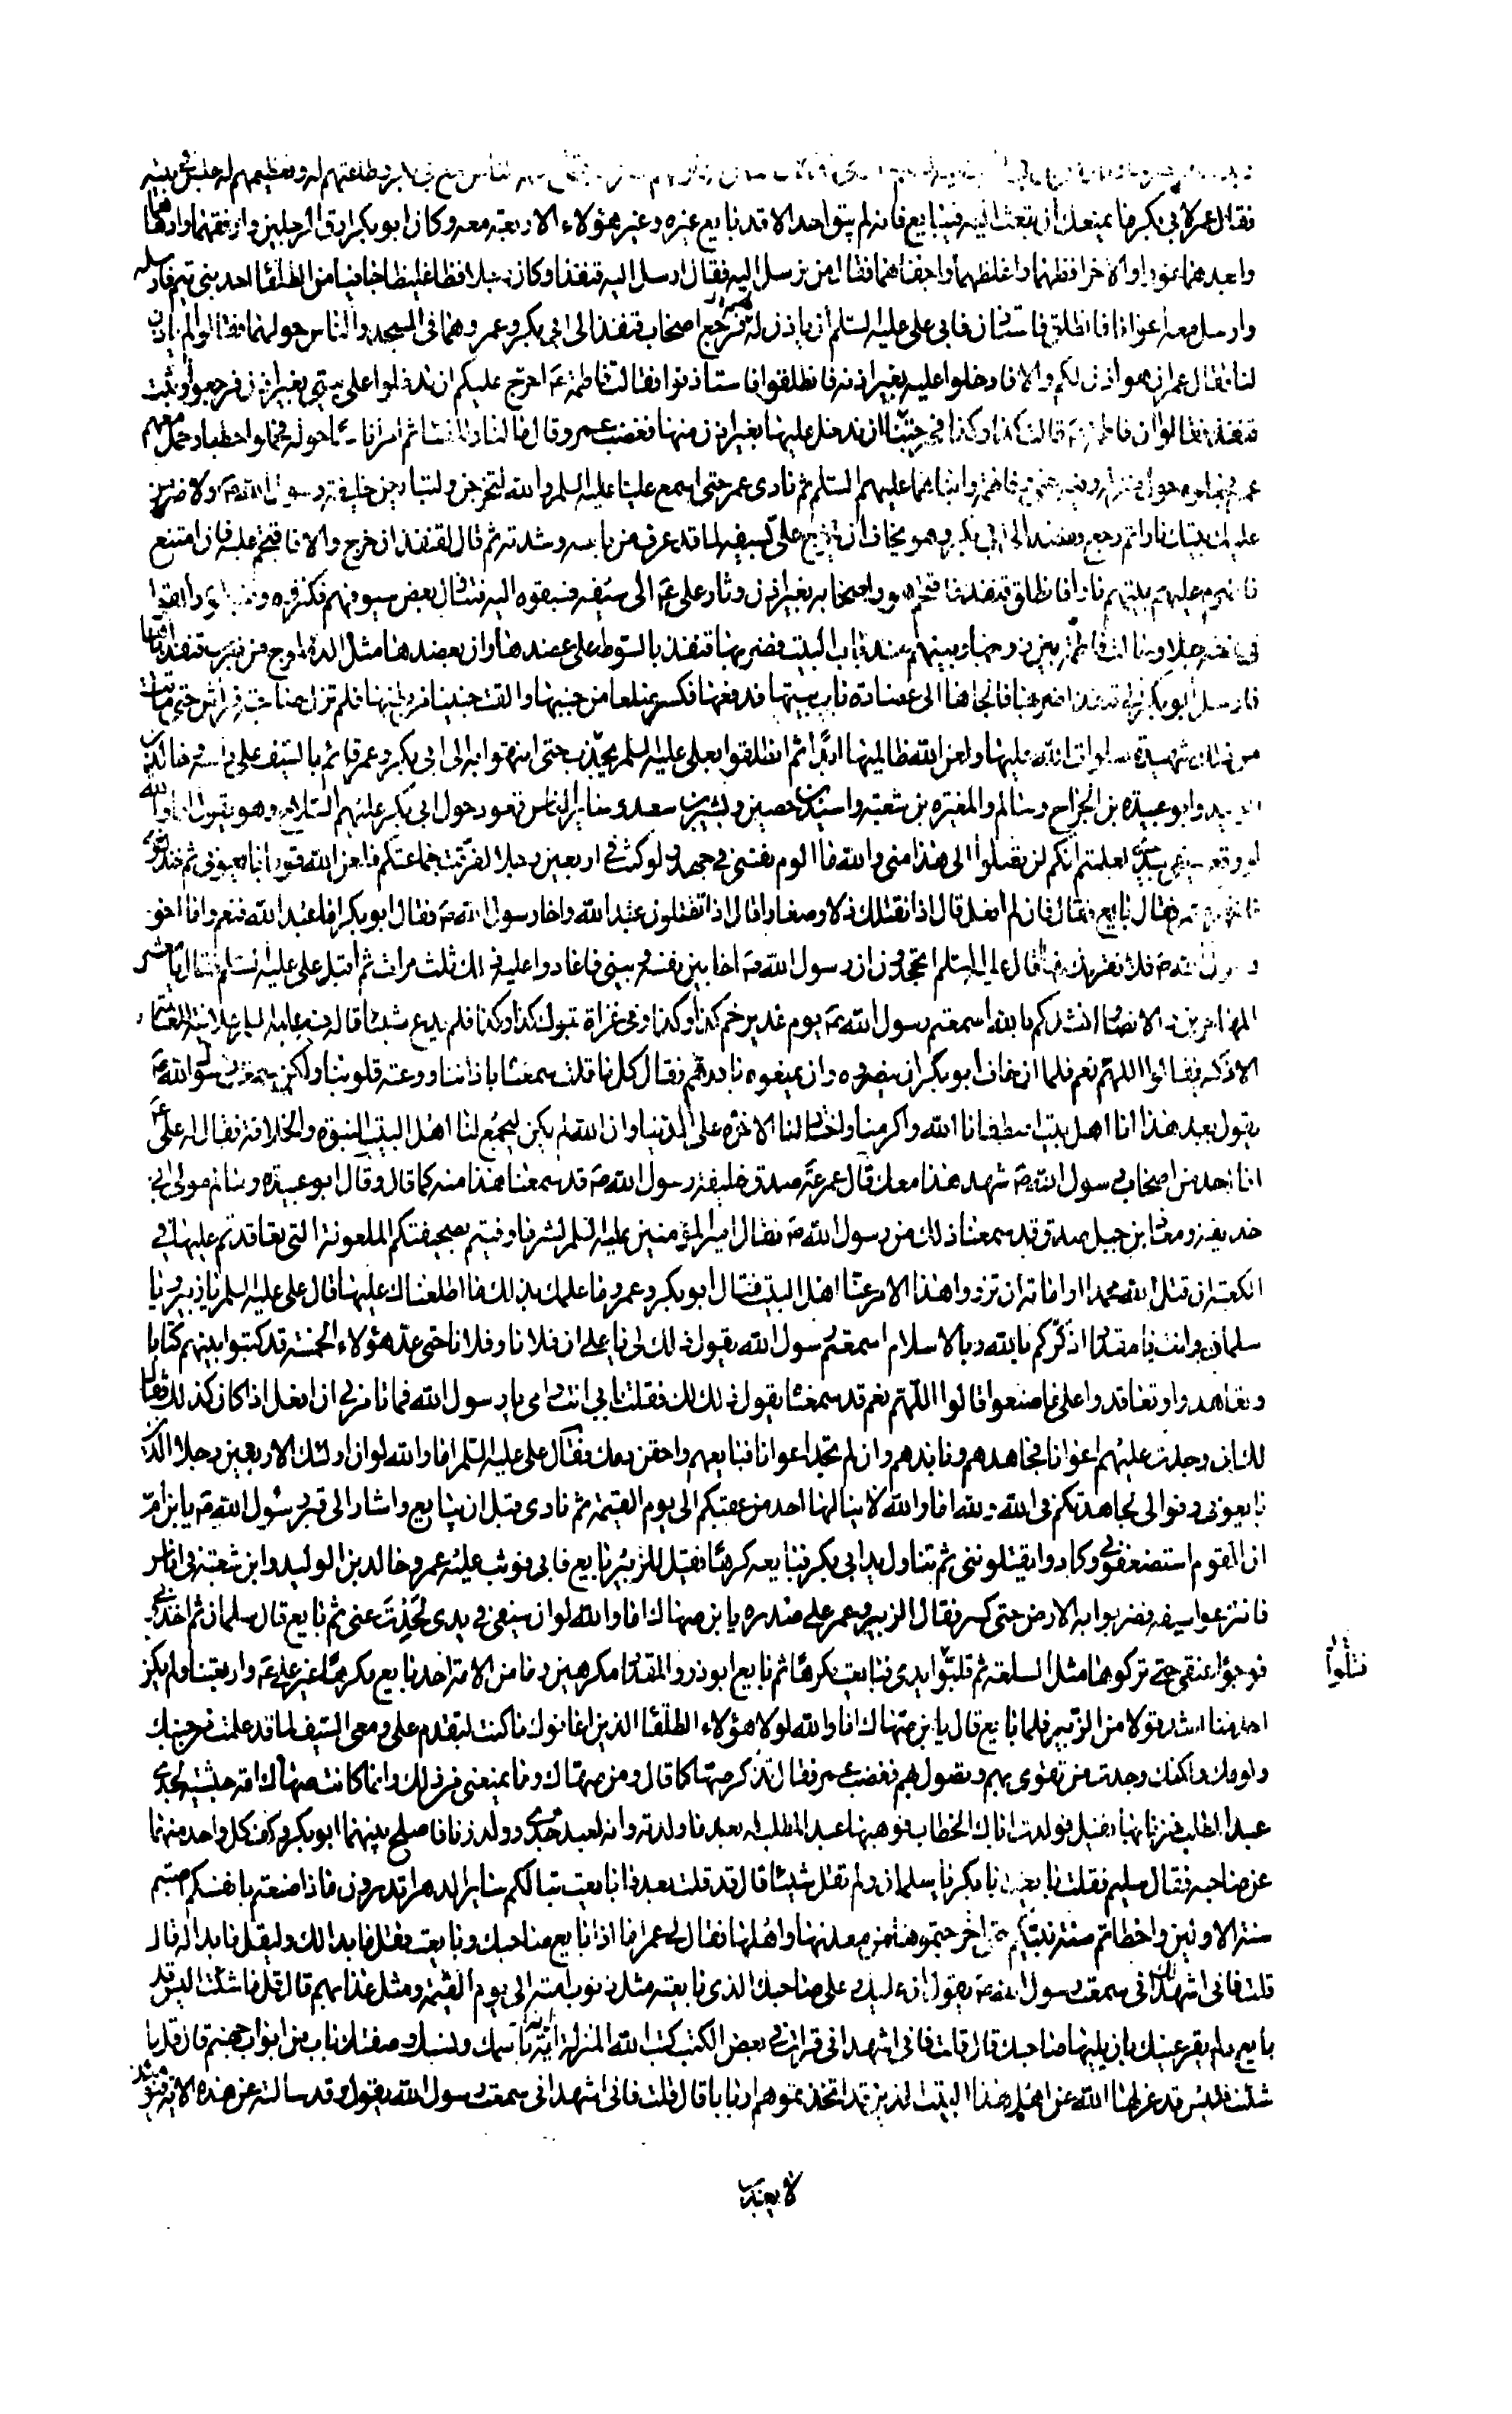 وطاعتهم له وتعظيمهم له جلس في بيته
فقال عمر لابي بكر ما يمنعك ان تبعث اليه فيبايع فانه لم يبق احد الا قد بايع غيره وغير هؤلاء الاربعة معه وكان ابو بكر ارق الرجلين وارفقهما وادهاهما
وابعدهما غورا والاخر افظهما واغلظهما واجفاهما فقال من نرسل اليه فقال ارسل اليه قنفذا وكان رجلا فظا غليظا جافيا من الطلقا احد بني تيم فارسله
وارسل معه اعوانا فانطلق فاستاذن فابى علي عليه السلم ان ياذن له فرجع اصحاب قنفذ الى ابي بكر وعمر وهما في المسجد والناس حولهما فقالوا لم ياذن
لنا فقال عمر ان هو اذن لكم والا فادخلوا عليه بغير اذنه فانطلقوا فاستاذنوا فقالت فاطمة ع احرج عليكم ان تدخلوا على بيتي بغير اذن فرجعوا وثبت
قنفذ فقالوا ان فاطمة قالت كذا وكذا فحرجتنا ان ندخل عليها بغير اذن منها فغضب عمر وقال ما لنا وللنسا ثم امر اناسا حوله فحملوا حطبا وحمل معهم
عمر فجعلوه حول منزله وفيه علي وفاطمة وابناهما عليهم السلم ثم نادى عمر حتى اسمع عليا عليه السلم والله لتخرجن ولتبايعن خليفة رسول الله ص او لاضرمن
عليك بيتك نارا ثم رجع قنفذ الى ابي بكر وهو يخاف ان يخرج علي بسيفه لما قد عرف من باسه وشدته ثم قال لقنفذ ان خرج والا فاقتحم عليه فان امتنع
فاضرم عليهم بيتهم نارا فانطلق قنفذ فاقتحم هو واصحابه بغير اذن وثار علي ع الى سيفه فسبقوه اليه فتناول بعض سيوفهم فكثروه وضبطوه والقوا
في عنقه حبلا وحالت فاطمة بين زوجها وبينهم عند باب البيت فضربها قنفذ بالسوط على عضدها وان بعضدها مثل الدملوج من ضرب قنفذ اياها
فارسل ابو بكر الى قنفذ اضربها فالجاها الى عضادة باب بيتها فدفعها فكسر ضلعا من جنبها والقت جنينا من بطنها فلم تزل صاحبة فراش حتى ماتت
من ذلك شهيدة صلوات الله عليها ولعن الله ظالميها ابدا ثم انطلقوا بعلي عليه السلم يجذب حتى انتهوا به الى ابي بكر وعمر قائم بالسيف على راسه وخالد بن
الوليد وابو عبيدة بن الجراح وسالم والمغيرة بن شعبة واسيد بن حصين وبشير بن سعد وساير الناس قعود حول ابي بكر عليهم السلاح وهو يقول اما والله
لو وقع سيفي بيدي لعلمتم انكم لن تصلوا الى هذا مني والله ما الوم نفسي في جهد ولو كنت في اربعين رجلا لفرقت جماعتكم فلعن الله قوما بايعوني ثم خذلوني
فقال بايع فقال فان لم افعل قال اذا نقتلك ذلا وصغارا قال اذا تقتلون عبد الله واخا رسول الله ص فقال ابو بكر اما عبد الله فنعم واما اخو
رسول الله ص فلا نعرفك بهذا قال عليه السلم اتجحدون ان رسول الله ص اخا بين نفسه وبيني فاعادوا عليه ذلك ثلث مرات ثم اقبل علي عليه السلم فقال يا معشر
المهاجرين والانصار انشدكم بالله اسمعتم رسول الله ص يوم غدير خم كذا وكذا وفي غزاة تبوك كذا وكذا فلم يدع شيئا قاله فيه عليه السلم علانية للعامة
الا ذكره فقالوا اللهم نعم فلما ان خاف ابو بكر ان ينصروه وان يمنعوه بادرهم فقال كل ما قلت سمعناه باذاننا ووعته قلوبنا ولكن سمعت رسول الله ص
يقول بعد هذا انا اهل بيت اصطفانا الله واكرمنا واختار لنا الاخرة على الدنيا وان الله لم يكن ليجمع لنا اهل البيت النبوة والخلافة فقال له علي ع
اما احد من اصحاب رسول الله ص شهد هذا معك قال عمر صدق خليفة رسول الله ص قد سمعنا هذا منه كما قال وقال ابو عبيدة وسالم مولى ابي
حذيفة ومعاذ بن جبل صدق قد سمعنا ذلك من رسول الله ص فقال امير المؤمنين عليه السلم لشد ما وفيتم بصحيفتكم الملعونة التي تعاقدتم عليها في
الكعبة ان قتل الله محمدا او اماته ان تزووا هذا الامر عنا اهل البيت فقال ابو بكر وعمر وما علمك بذلك ما اطلعناك عليها قال علي عليه السلم يا زبير ويا
سلمان وانت يا مقداد اذكركم بالله وبالاسلام اسمعتم رسول الله يقول ذلك لي يا علي ان فلانا وفلانا حتى عد هؤلاء الخمسة قد كتبوا بينهم كتابا
وتعاهدوا وتعاقدوا على ما صنعوا قالوا اللهم نعم قد سمعناه يقول ذلك لك فقلت بابي انت وامي يا رسول الله فما تامرني ان افعل اذا كان كذلك فقال
لك ان وجدت عليهم اعوانا فجاهدهم ونابذهم وان لم تجد اعوانا فبايعهم واحقن دمك فقال علي عليه السلم اما والله لو ان اولئك الاربعين رجلا الذين
بايعوني وفوا لي لجاهدتكم في الله ولله اما والله لا ينالها احد من عقبكم الى يوم القيمة ثم نادى قبل ان يبايع واشار الى قبر رسول الله ص يا بن ام
ان القوم استضعفوني وكادوا يقتلونني ثم تناول يد ابي بكر فبايعه كرها فقيل للزبير بايع فابى فوثب عليه عمر وخالد بن الوليد وابن شعبة في اناس
فانتزعوا سيفه فضربوا به الارض حتى كسر فقال الزبير وعمر على صدره يا بن صهاك اما والله لو ان سيفي في يدي لحدت عني ثم بايع قال سلمان ثم اخذوني
فوجؤا عنقي حتى تركوها مثل السلعة ثم قلبوا يدي فبايعت كرها ثم بايع ابو ذر والمقداد مكرهين وما من الامة احد بايع مكرها غير علي ع واربعتنا ولم يكن
احد منا اشد قولا من الزبير فلما بايع قال يا بن صهاك اما والله لولا هؤلاء الطلقا الذين اعانوك ما كنت لتقدم علي ومعي السيف لما قد علمت من جبنك
ولومك ولكنك وجدت من تقوى بهم وتصول بهم فغضب عمر فقال تذكر صهاك قال ومن صهاك وما يمنعني من ذلك وانما كانت صهاك امة حبشية لجدي
عبد المطلب فزنا بها نفيل فولدت اباك الخطاب فوهبها عبد المطلب له بعد ما ولدته وانه لعبد جدي ولد زنا فاصلح بينهما ابو بكر وكف كل واحد منهما
عن صاحبه فقال سليم فقلت بايعت ابا بكر يا سلمان ولم تقل شيئا قال قد قلت بعد ما بايعت تبا لكم ساير الدهر اتدرون ماذا صنعتم بانفسكم اصبتم
سنة الاولين واخطاتم سنة نبيكم حتى اخرجتموها من معدنها واهلها فقال لي عمر اما اذا بايع صاحبك وبايعت فقل ما بدا لك وليقل ما بدا له قال
قلت فاني اشهد اني سمعت رسول الله ص يقول ان عليك وعلى صاحبك الذي بايعته مثل ذنوب امته الى يوم القيمة ومثل عذابهم قال قل ما شئت اليس قد
بايع ولم يقر عينك بان يليها صاحبك قال قلت فاني اشهد اني قرات في بعض الكتب كتب الله المنزلة انه باسمك ونسبك وصفتك باب من ابواب جهنم قال قل ما
شئت فليس قد عزلها الله عن اهل هذا البيت الذين قد اتخذتموهم اربابا قال قلت فاني اشهد اني سمعت رسول الله يقول وقد سالته عن هذه الاية فيومئذ
لا يعذب